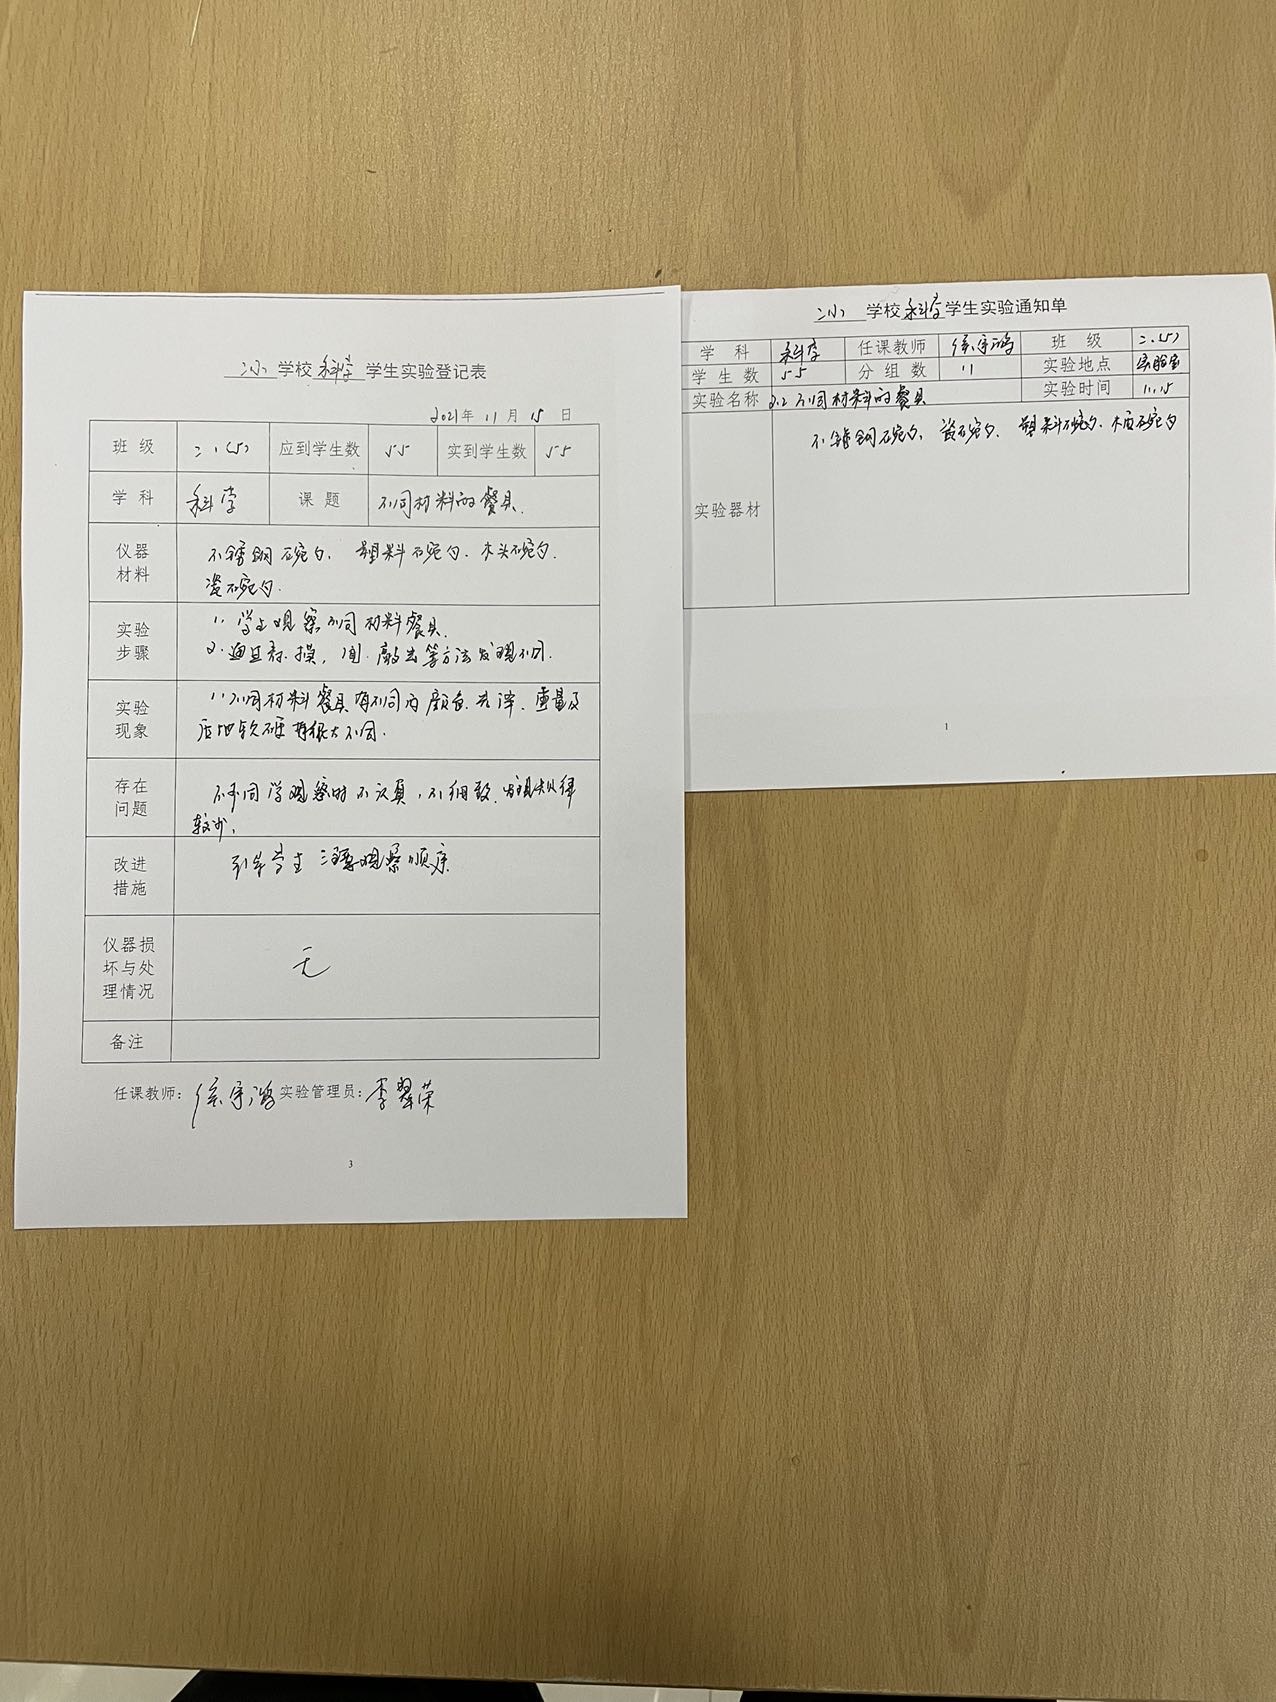 二小 学校 科学 学生实验登记表
2021年 11 月 15 日
班 级 二、(5) 应到学生数 55 实到学生数 55
学 科 科学 课 题 不同材料的餐具
仪器
材料
不锈钢碗勺、塑料碗勺、木头碗勺、
瓷碗勺.
实验
步骤
1、学生观察不同材料餐具.
2、通过看、摸、闻、敲击等方法发现不同.
实验
现象
1、不同材料餐具有不同的颜色、光泽、重量及
质地软硬 有很大不同.
存在
问题
不少同学观察时不认真,不细致,发现规律
较少.
改进
措施
引导学生 注意观察顺序
仪器损
坏与处
理情况
无
备注
任课教师: 徐宇鸿 实验管理员: 李翠荣
3
二小 学校 科学 学生实验通知单
学 科 科学 任课教师 徐宇鸿 班 级 二、(5)
学 生 数 55 分 组 数 11 实验地点 实验室
实验名称 2.2 不同材料的餐具 实验时间 11.15
实验器材
不锈钢碗勺、瓷碗勺、塑料碗勺、木质碗勺
1